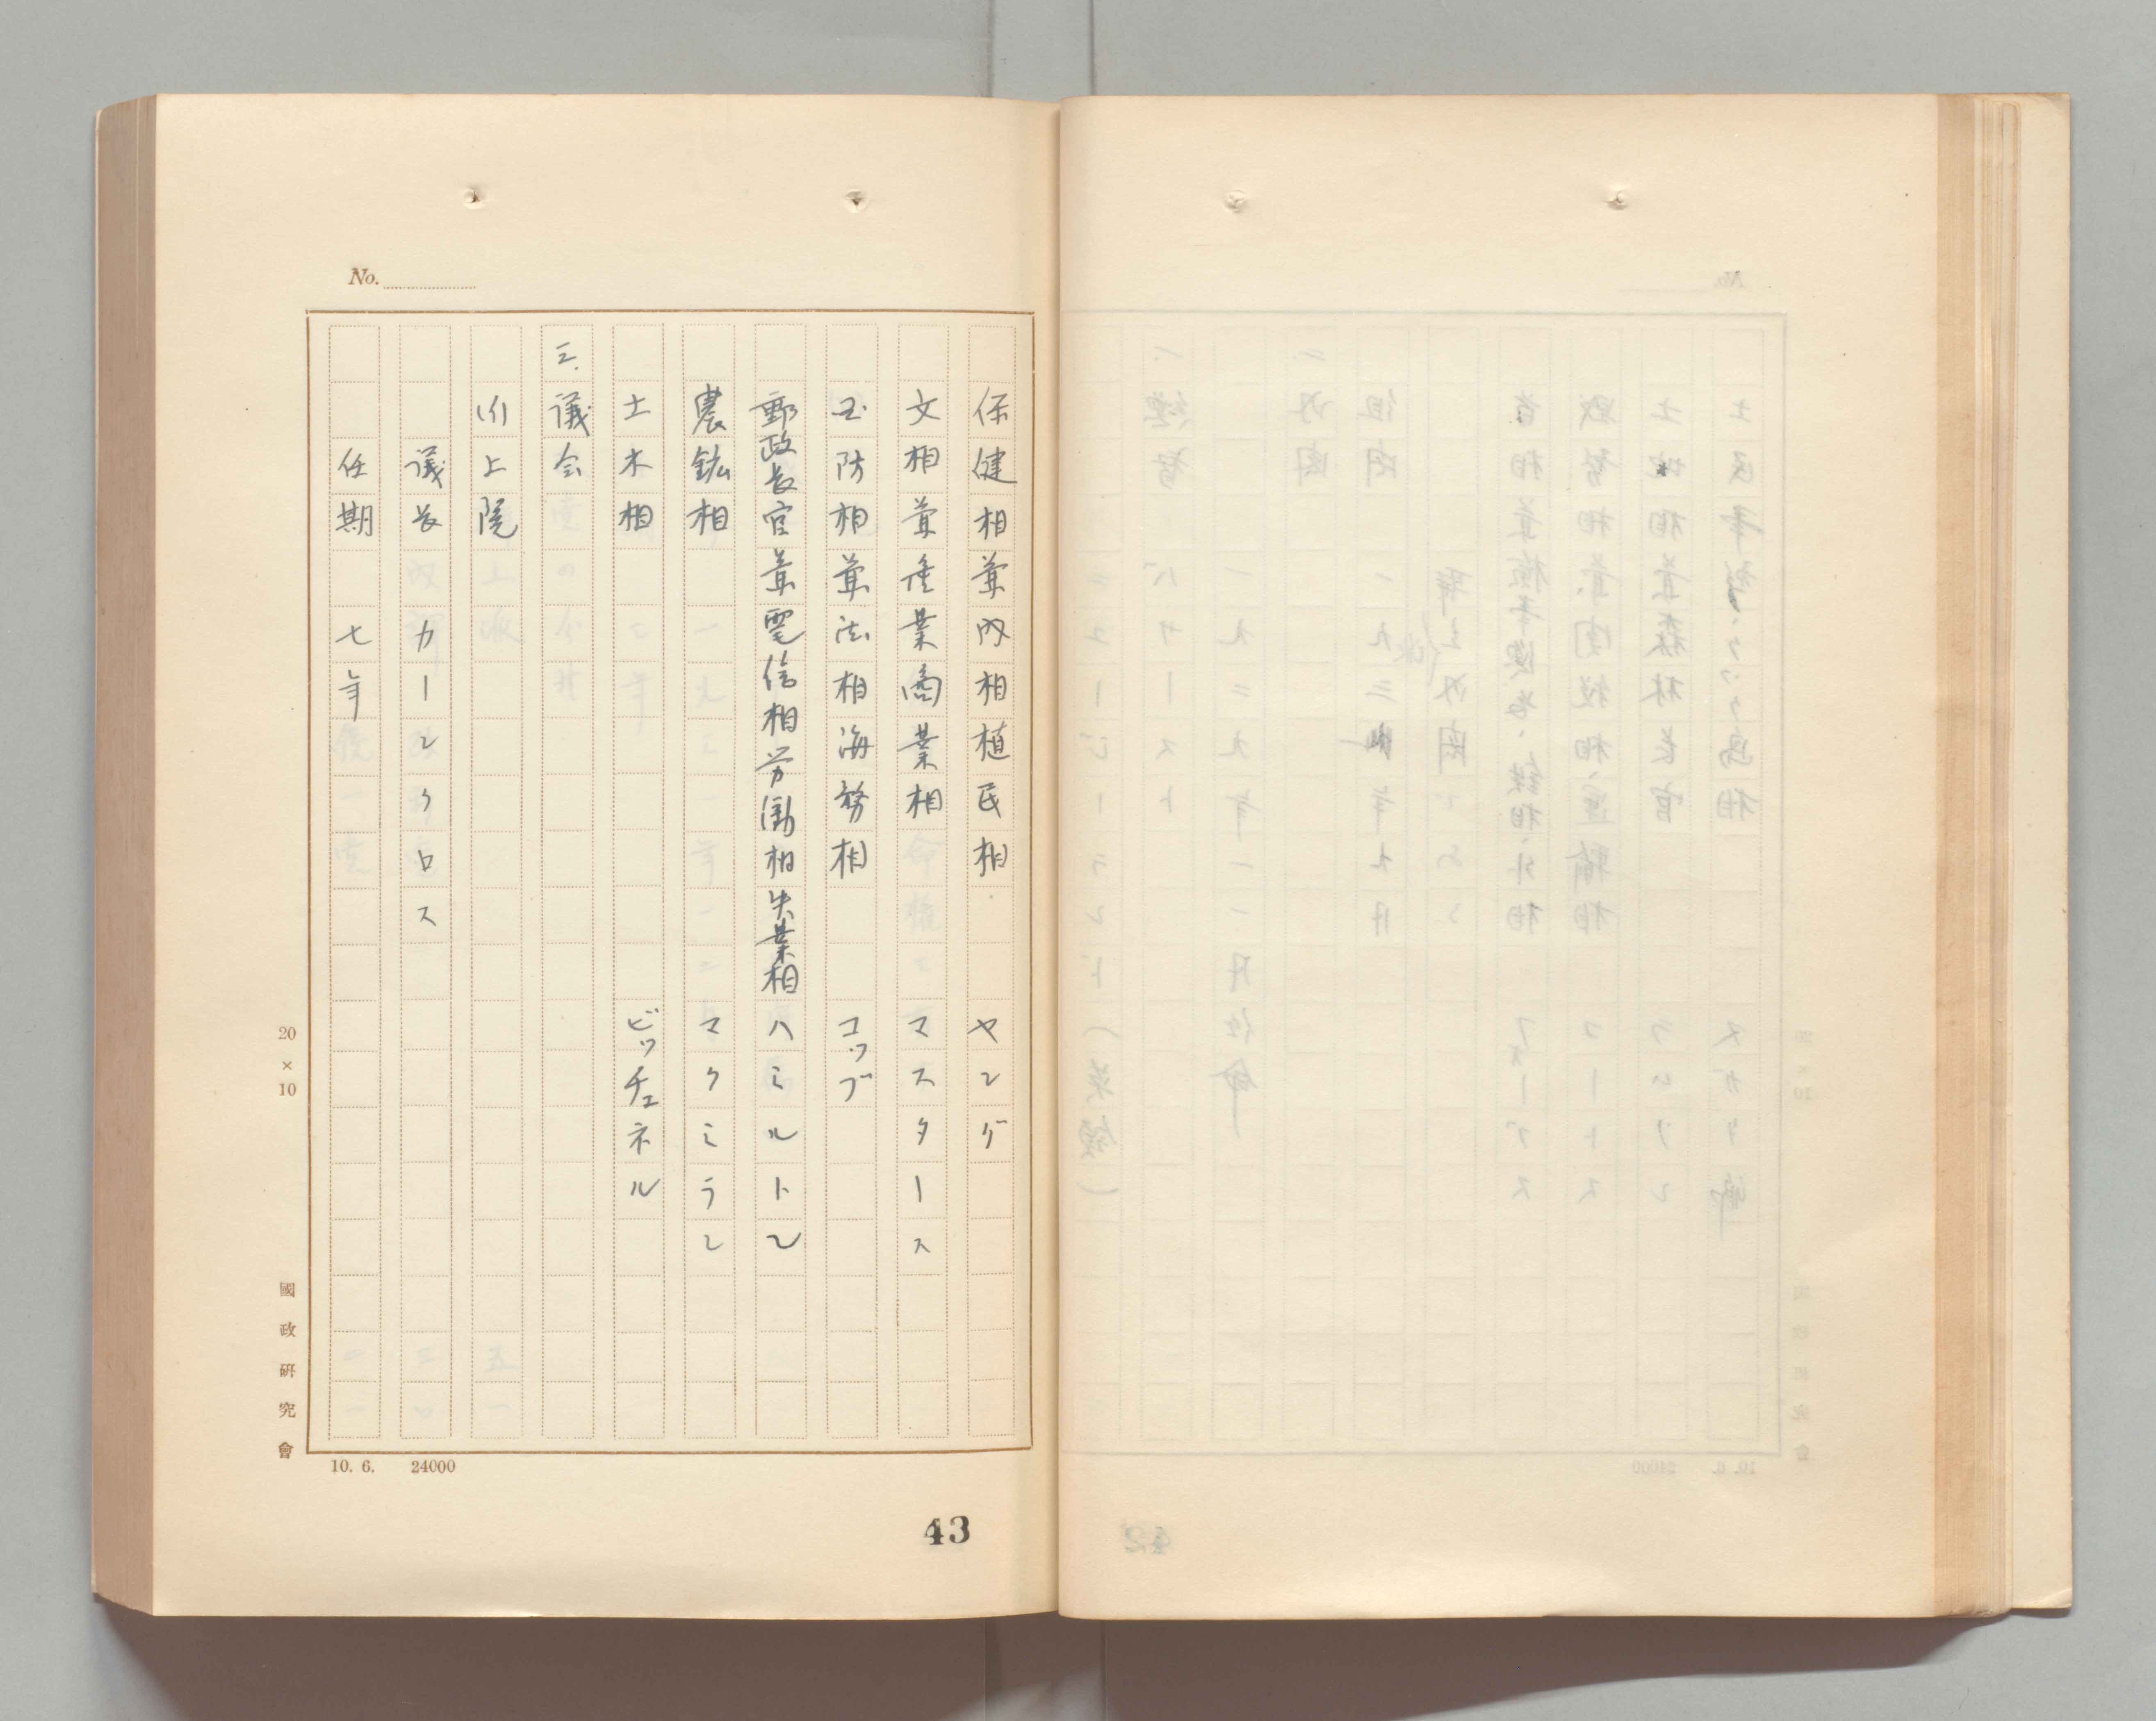 No.
保健相兼内相植民相　ヤング
文相兼産業商業相　マスタース
国防相兼法相海務相　コッブ
郵政長官兼電信相労働相失業相　ハミルトン
農鉱相　マクミラン
土木相　ビッチェネル
三.議会
(1)上院
議長　カーンクロス
任期　七年
20×10
國政研究會
10. 6.　24000
43